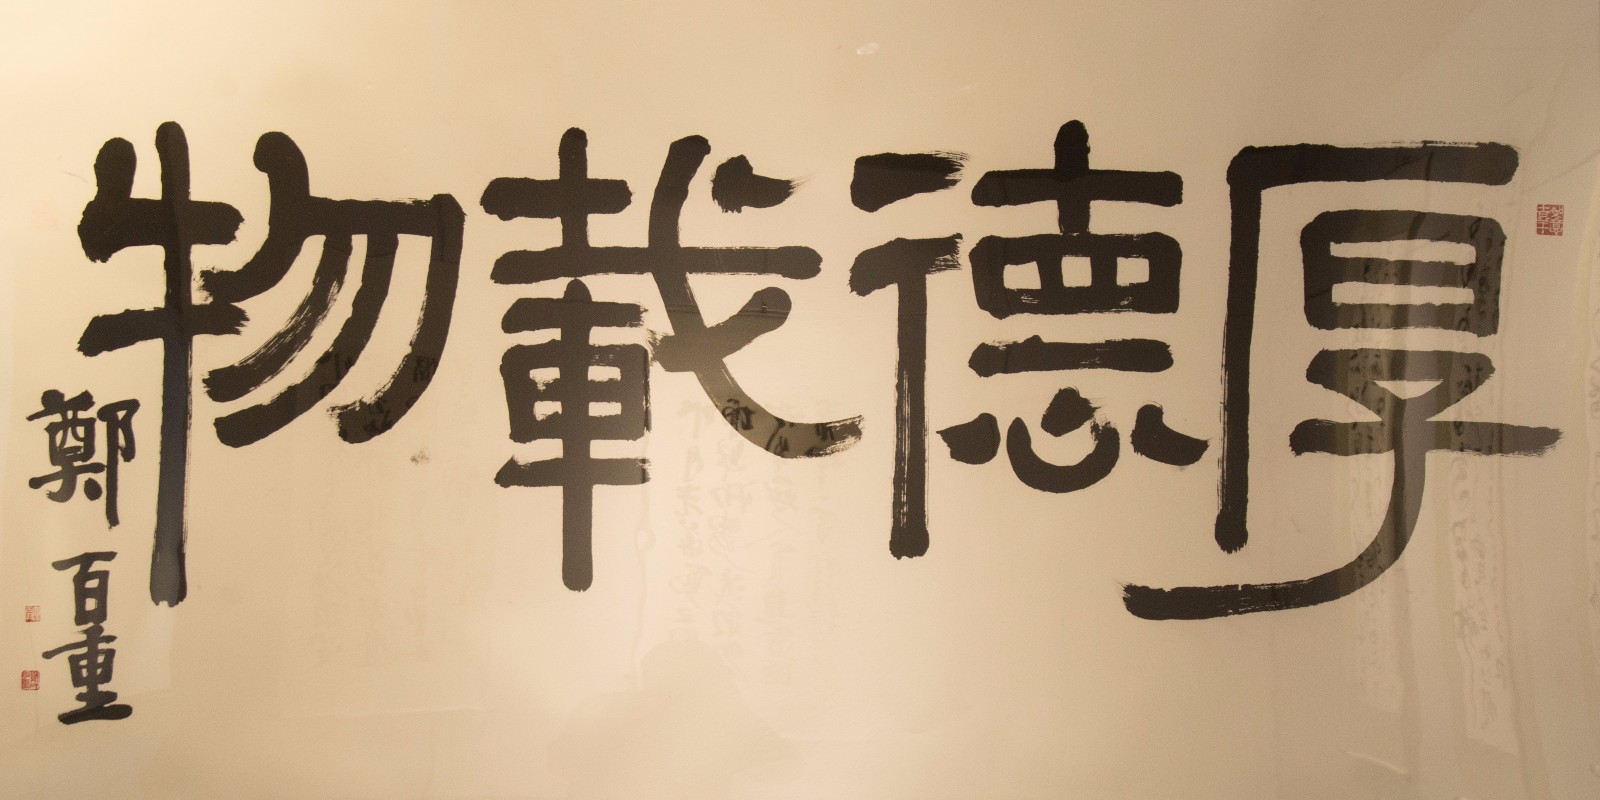 厚德載物
鄭百重